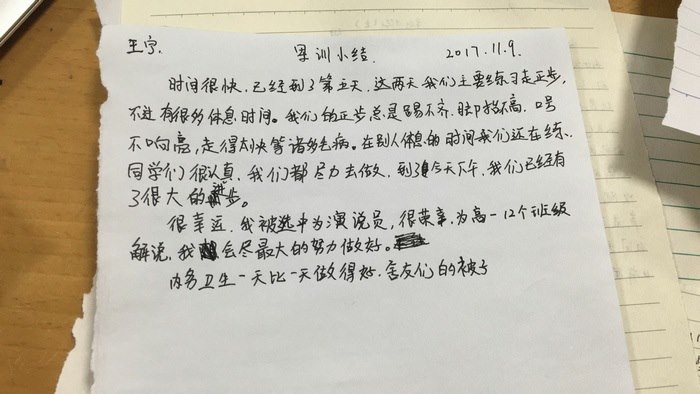 王宁. 军训小结. 2017.11.9.
时间很快,已经到了第五天,这两天我们主要练习走正步,
不过有很多休息时间。我们的正步总是踢不齐,脚抬不高,口号
不响亮,走得太快等诸多毛病。在别人休息的时间我们还在练.
同学们很认真,我们都尽力去做,到了今天下午,我们已经有
了很大的进步。
很幸运,我被选中为演说员,很荣幸,为高一12个班级
解说,我会尽最大的努力做好。
内务卫生一天比一天做得好.舍友们的被子